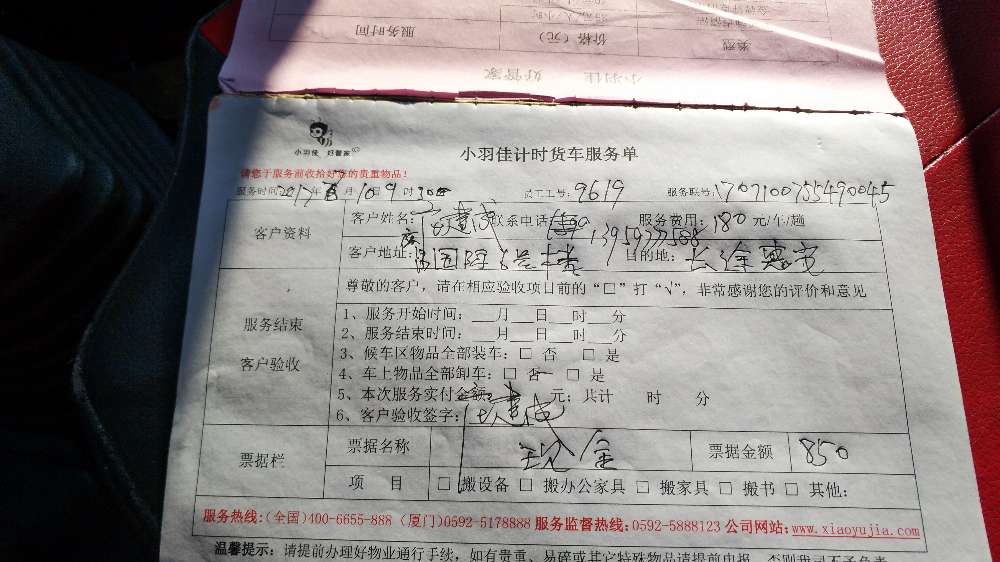 服务时间 价格（元） 类型
小羽佳 好管家
小羽佳 好管家
小羽佳计时货车服务单
请您于服务前收拾好您的贵重物品！
服务时间2017年 月10日9时30分 员工工号：9619 服务联号：
客户资料
客户姓名： 联系电话 13959777588 服务费用：180元/车/趟
客户地址： 国际 目的地：
尊敬的客户，请在相应验收项目前的“□”打“√”，非常感谢您的评价和意见
服务结束
客户验收
1、服务开始时间：___月___日___时___分
2、服务结束时间：___月___日___时___分
3、候车区物品全部装车：□ 否 □ 是
4、车上物品全部卸车：□ 否 □ 是
5、本次服务实付金额： 元；共计 时 分
6、客户验收签字：
票据栏
票据名称 现金 票据金额 850
项 目 □ 搬设备 □ 搬办公家具 □ 搬家具 □ 搬书 □ 其他：
服务热线：(全国)400-6655-888 (厦门)0592-5178888 服务监督热线：0592-5888123 公司网站：www.xiaoyujia.com
温馨提示：请提前办理好物业通行手续，如有贵重、易碎或其它特殊物品请提前申报，否则我司不予负责